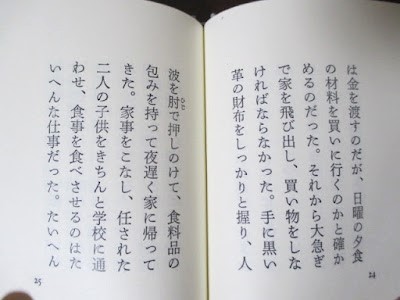 は金を渡すのだが、日曜の夕食
の材料を買いに行くのかと確か
めるのだった。それから大急ぎ
で家を飛び出し、買い物をしな
ければならなかった。手に黒い
革の財布をしっかりと握り、人
24
波を肘で押しのけて、食料品の
ひじ
包みを持って夜遅く家に帰って
きた。家事をこなし、任された
二人の子供をきちんと学校に通
わせ、食事を食べさせるのはた
いへんな仕事だった。たいへん
25